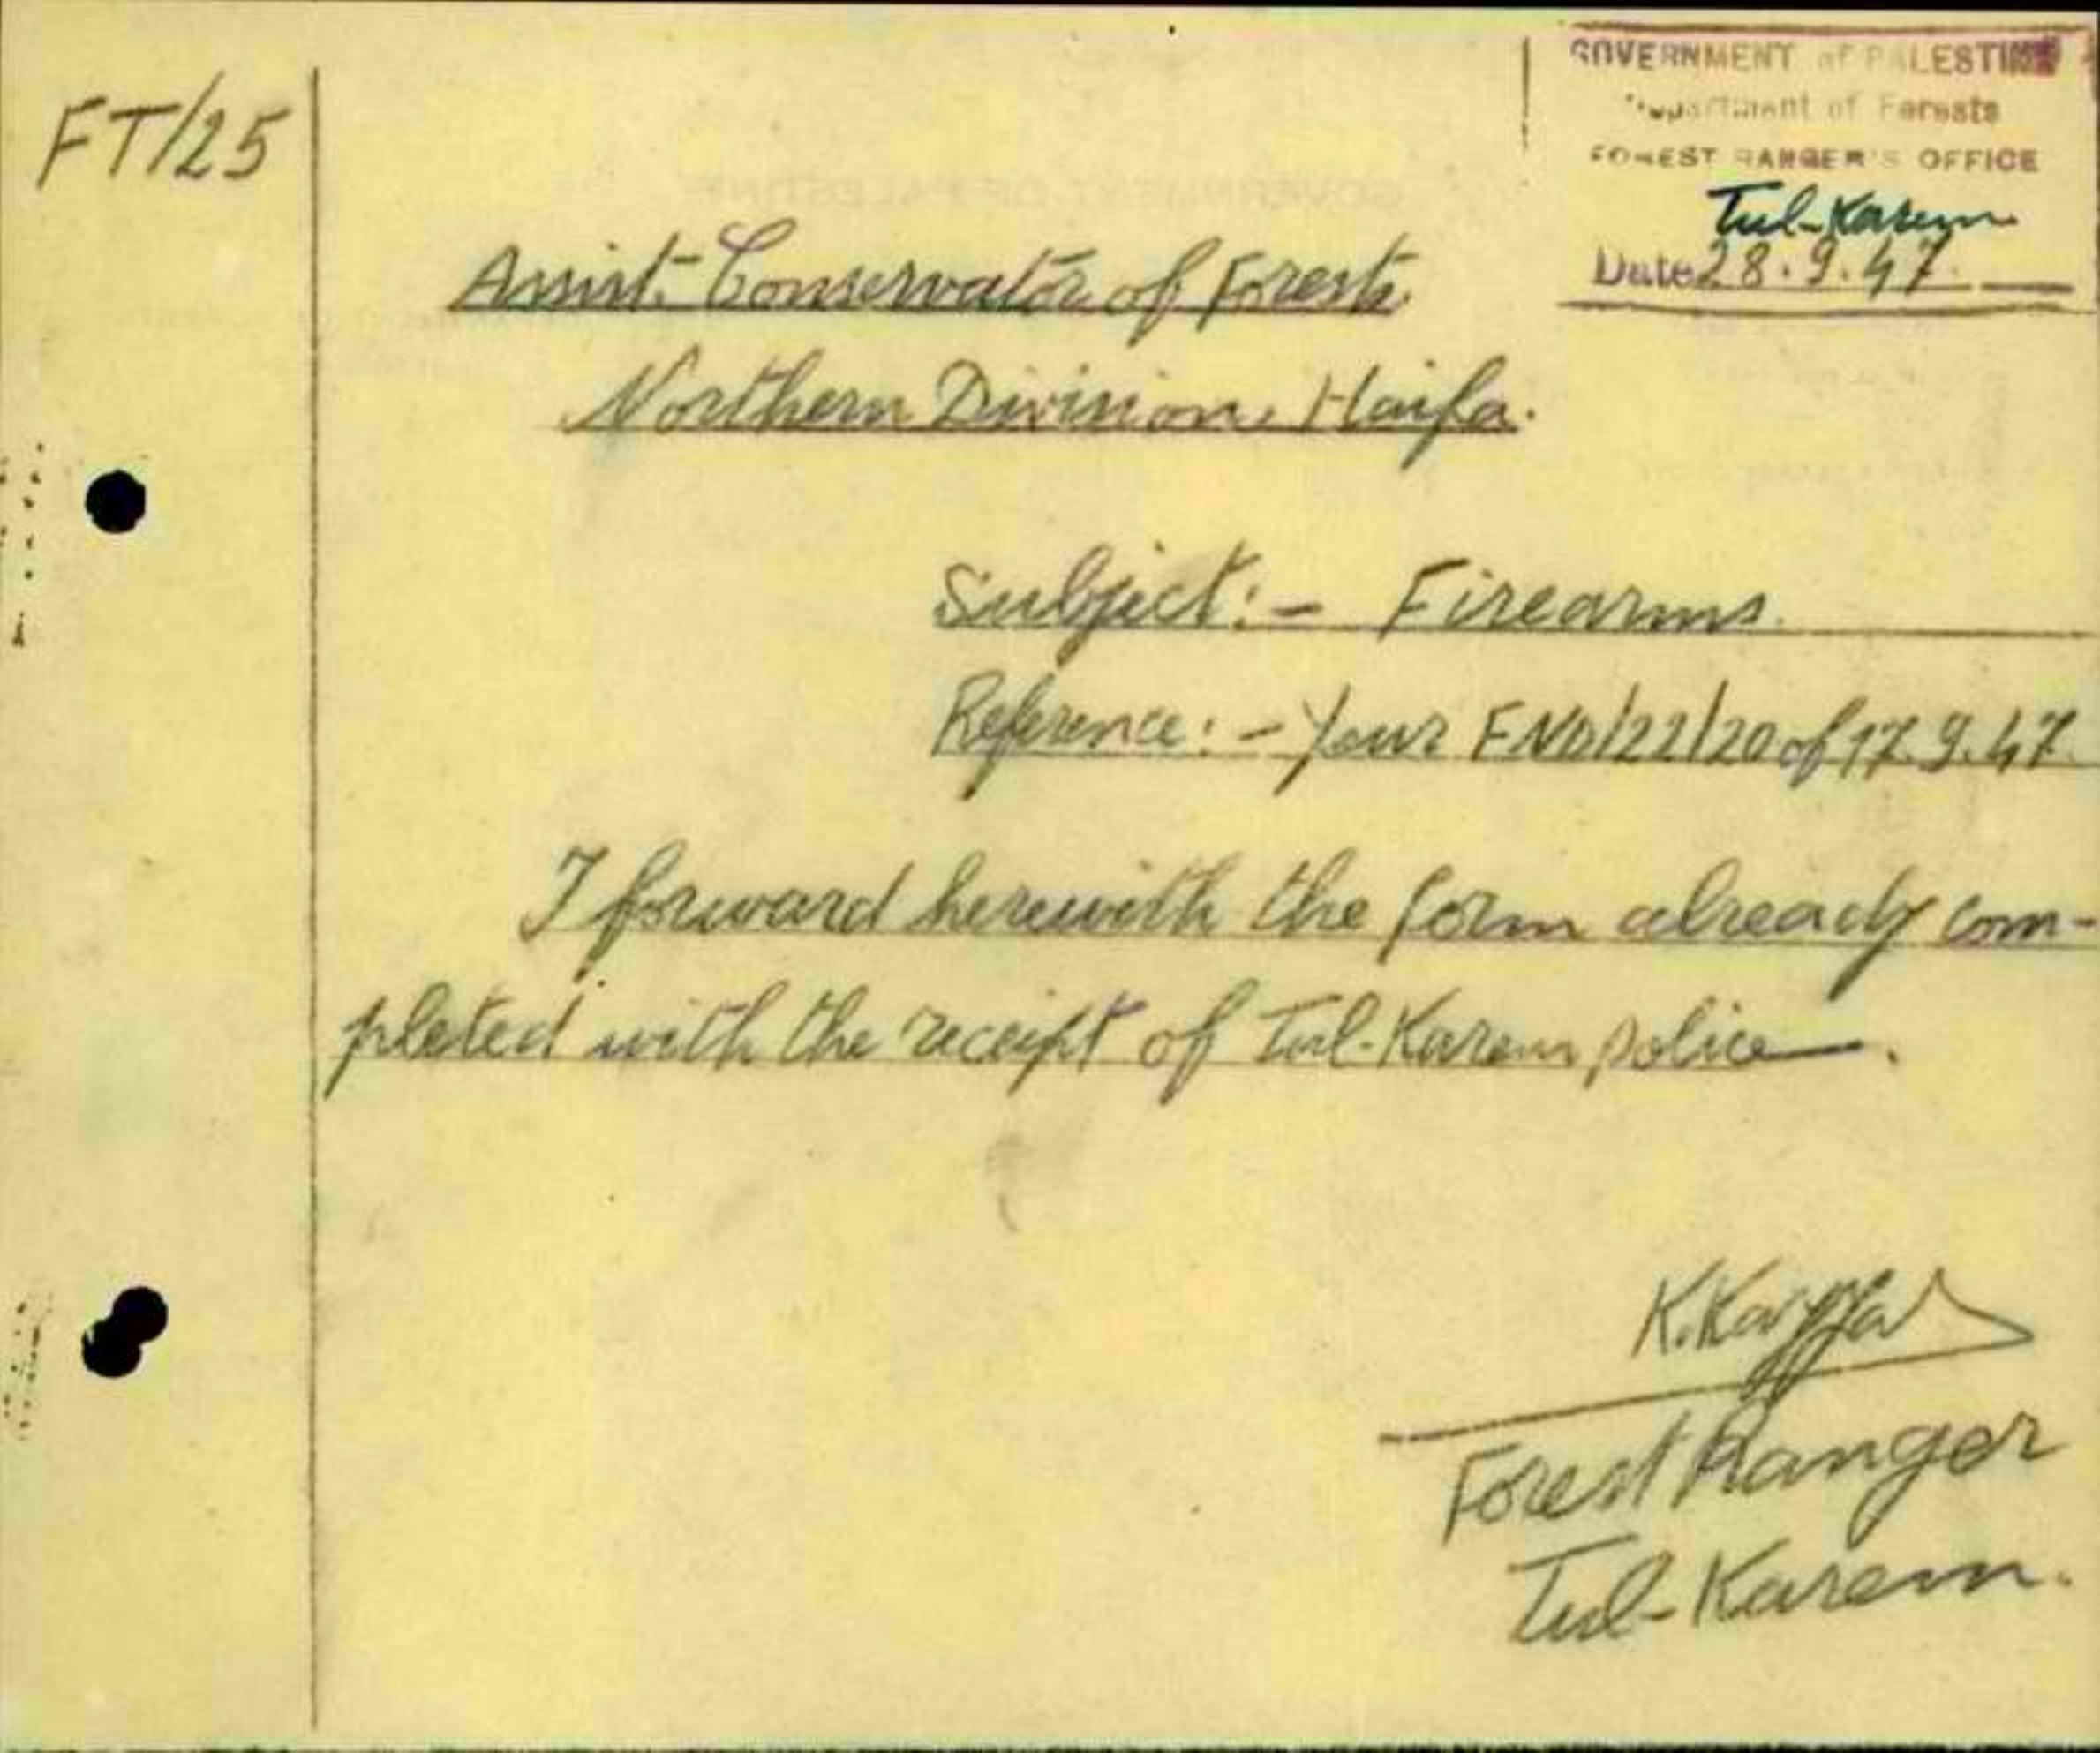 FT/25
GOVERNMENT of PALESTINE
Department of Forests
FOREST RANGER'S OFFICE
Tul-Karem
Date 28.9.47.
Assist. Conservator of Forests
Northern Division, Haifa.
Subject:- Firearms.
Reference:- Your FND/22/20 of 17.9.47.
I forward herewith the form already com-
pleted with the receipt of Tul-Karem police.
Forest Ranger
Tul-Karem.